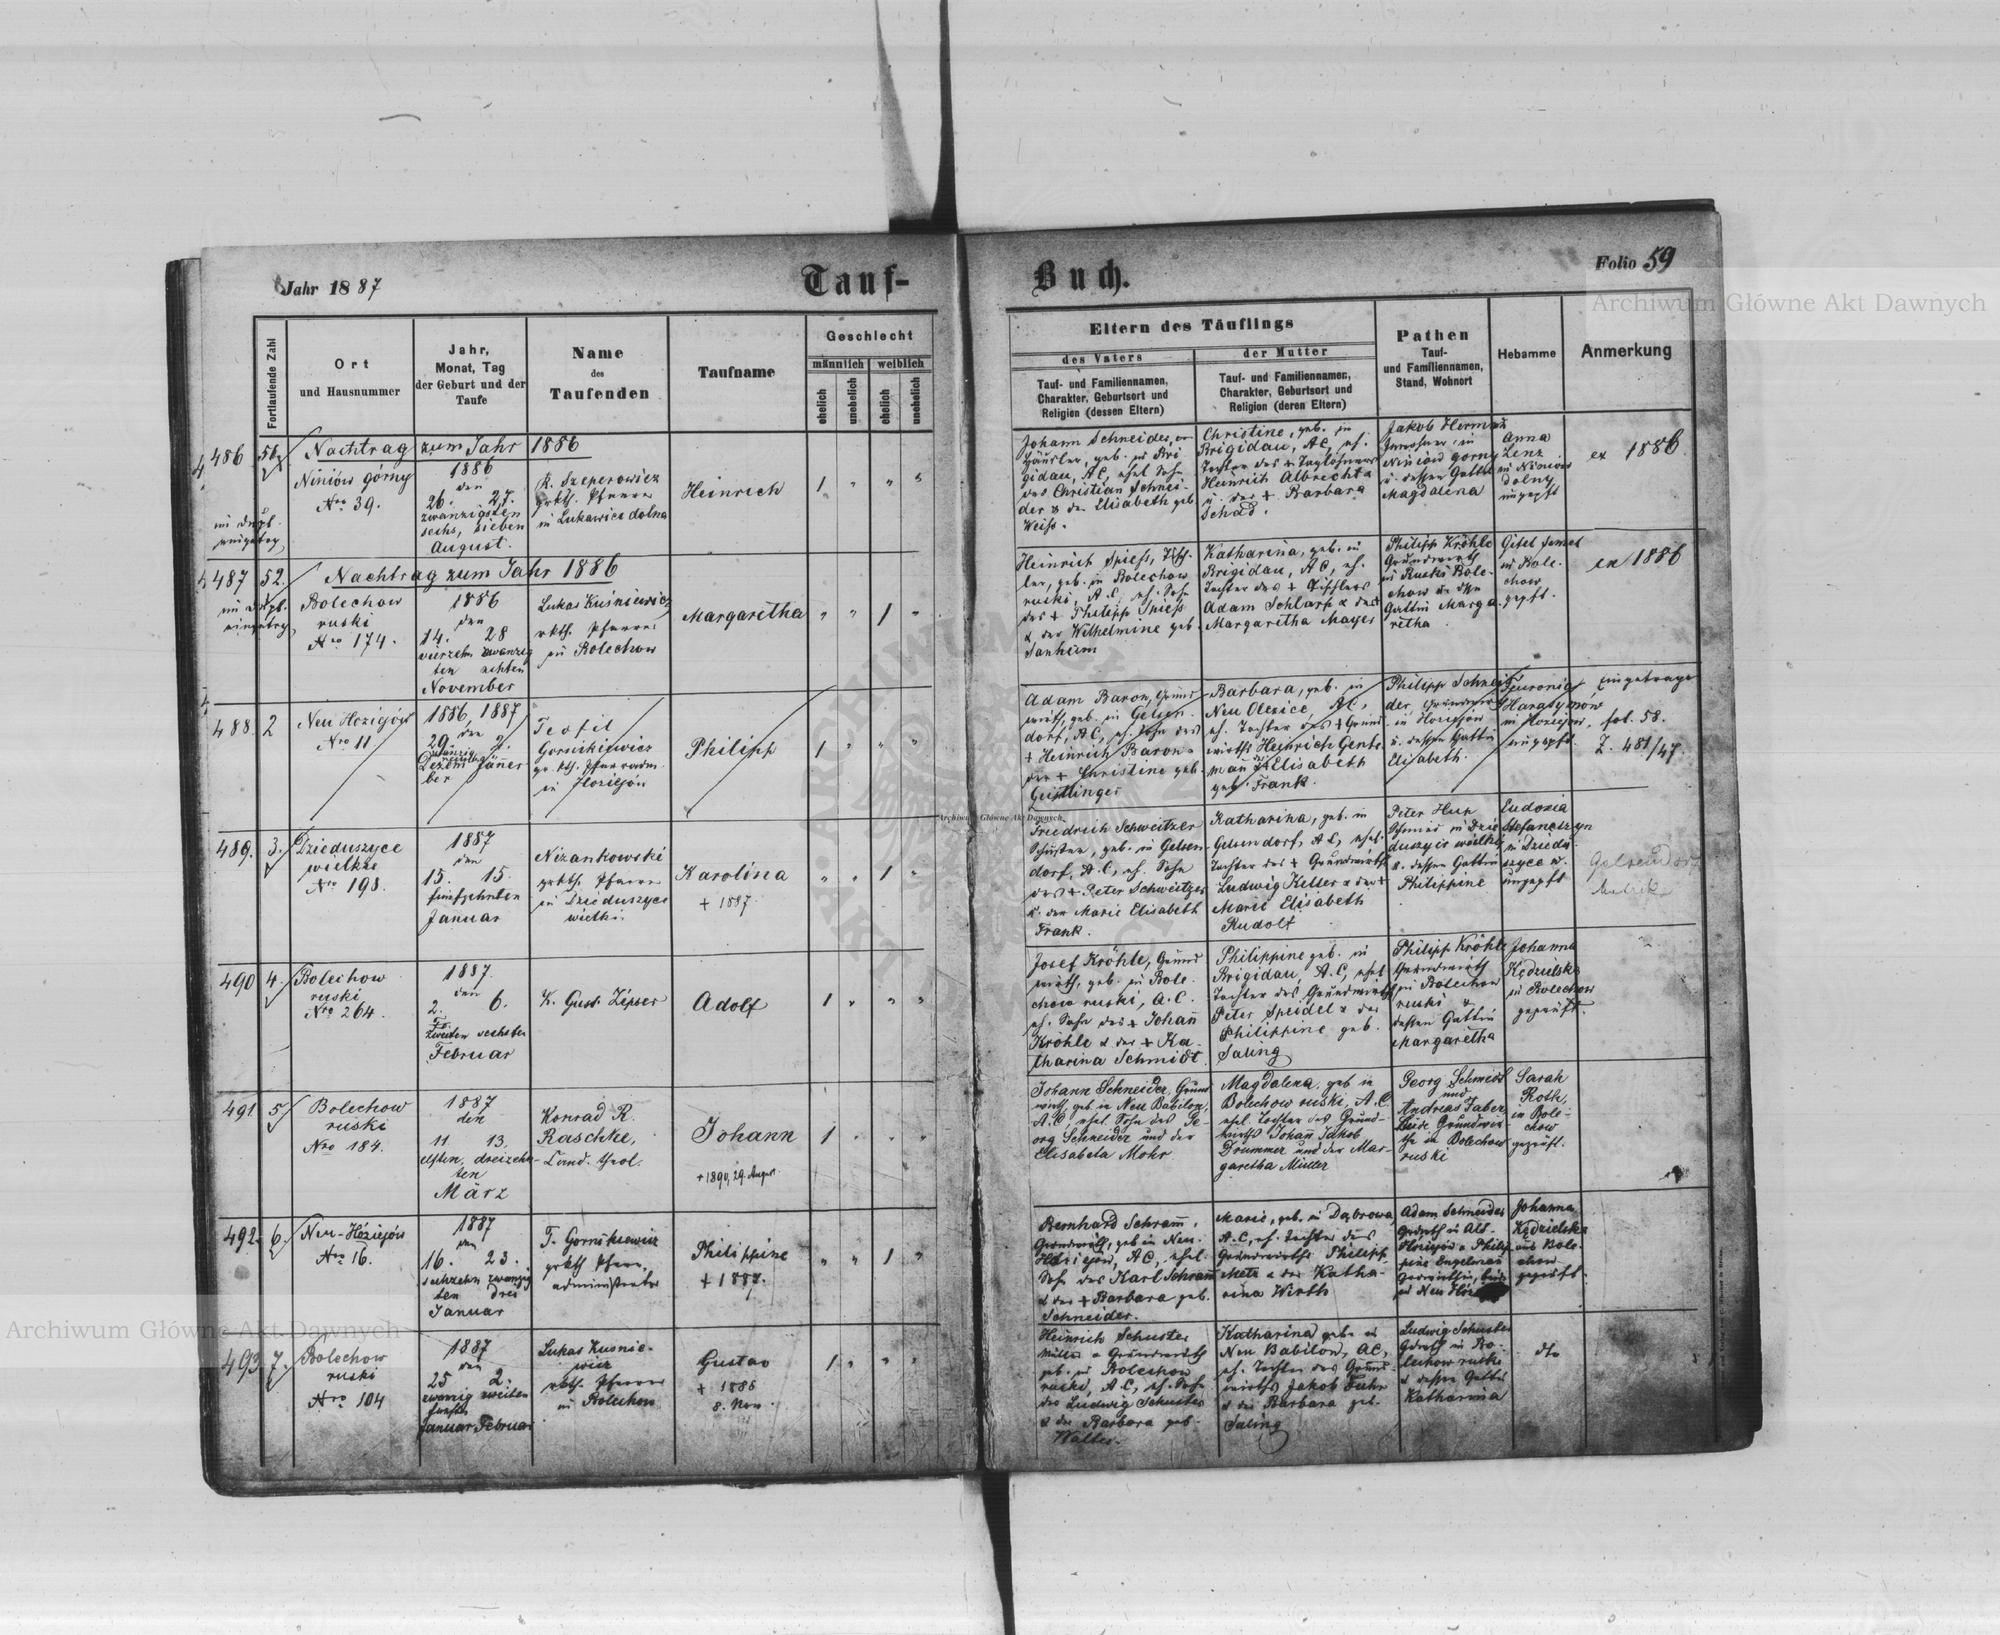 Jahr 1887
Tauf-
Buch.
Folio 59
Fortlaufende Zahl
Ort
und Hausnummer
Jahr,
Monat, Tag
der Geburt und der
Taufe
Name
des
Taufenden
Taufname
Geschlecht
männlich
weiblich
ehelich
unehelich
ehelich
unehelich
Eltern des Täuflings
des Vaters
der Mutter
Tauf- und Familiennamen,
Charakter, Geburtsort und
Religion (dessen Eltern)
Tauf- und Familiennamen,
Charakter, Geburtsort und
Religion (deren Eltern)
Pathen
Tauf-
und Familiennamen,
Stand, Wohnort
Hebamme
Anmerkung
486
Nachtrag zum Jahr 1886
Niniów górny
Nro 39.
1886
den
26. 27.
zwanzigsten
sechs, sieben
August.
K. Szeperowicz
grkth. Pfarrer
in Lukawica dolna
Heinrich
1 " " "
Johann Schneider,
Häusler, geb. in Bri
gidau, AC, ehel. Sohn
des Christian Schnei-
der & der Elisabeth geb
Weiß.
Christine, geb. in
Brigidau, AC, eh.
Tochter des + Taglöhners
Heinrich Albrecht &
u. der + Barbara
Schad.
Jakob
in
Niniów gorny
u. dessen Gattin
Magdalena
Anna
Lenz
in Niniow
dolny
ungepft
ex 1886.
487 52.
Nachtrag zum Jahr 1886
Bolechow
ruski
Nro 174.
1886
den
14. 28
vierzehn zwanzig
ten achten
November
Lukas Kuśniewicz
rkth. Pfarrer
in Bolechow
Margaretha
" " 1 "
Heinrich Spiess, Tisch-
ler, geb. in Bolechow
ruski, A.C, eh. Sohn
des + Philipp Spiess
& der Wilhelmine geb.
Katharina, geb. in
Brigidau, AC, eh.
Tochter des +
Adam Schlarp & der
Margaretha Mayer
Philipp Kröhle
Grundwirth
in Ruski Bole-
chow & dssn
Gattin Marga-
retha
Gitel
in Bole-
chow
gepft.
ex 1886
488. 2
Neu Hoziejów
Nro 11.
1886, 1887
den
29. 2.
Dezem Jäner
ber
Teofil
Gornikiewicz
gr. kth. Pfarradm.
in Hoziejów
Philipp
1 " " "
Adam Baron, Grund
wirth, geb. in Gelsen-
dorf, AC, eh. Sohn des
+ Heinrich Baron &
der + Christine geb.
Geistlinger
Barbara, geb. in
Neu Olexice, AC,
eh. Tochter des + Grund
wirths Heinrich Gente
man & Elisabeth
geb. Frank.
Philipp Schnei
der, Grundwirth
in Hoziejów
u. dessen Gattin
Elisabeth.
Harasymów
in Hoziejów,
ungepft.
Eingetragen
fol. 58.
Z. 481/47.
489. 3.
Dzieduszyce
wielkie
Nro 198.
1887
den
15. 15.
fünfzehnten
Januar
Nizankowski
grkth. Pfarrer
in Dzieduszyce
wielki.
Karolina
+ 1887.
" " 1 "
Friedrich Schweitzer
Schuster, geb. in Gelsen
dorf, A.C, eh. Sohn
des + Peter Schweitzer
u. der Marie Elisabeth
Frank.
Katharina, geb. in
Gelsendorf, AC, ehel.
Tochter des + Grundwirths
Ludwig Keller & der +
Marie Elisabeth
Rudolf
Peter Hup
Schmied in Dzie
duszyce wielkie
u. dessen Gattin
Philippine
Eudoxia
Stefanczyn
in Dziedu
szyce w.
ungepft
Gelsendorf
Matrik
490 4.
Bolechow
ruski
Nro 264.
1887.
den
2. 6.
zweiten sechsten
Februar
K. Gust. Zipser
Adolf
1 " " "
Josef Kröhle, Grund
wirth, geb. in Bole-
chow ruski, A.C.
eh. Sohn des + Johan
Kröhle & der + Ka-
tharina Schmidt.
Philippine geb. in
Brigidau, A.C, ehel
Tochter des Grundwirths
Peter Speidel & der
Philippine geb.
Saling
Philipp Kröhle
Grundwirth
in Bolechow
ruski &
dessen Gattin
Margaretha
Johanna
Kędzielska
in Bolechow
geprüft.
491 5
Bolechow
ruski
Nro 184.
1887
den
11. 13.
elften, dreizehn-
ten
März
Konrad R.
Raschke,
Cand. theol.
Johann
+ 1890, 29. August
1 " " "
Johann Schneider, Grund
wirth, geb. in Neu Babilon,
A.C, ehel. Sohn des Ge-
org Schneider und der
Elisabeta Mohr
Magdalena, geb in
Bolechow ruski, A.C.
ehel. Tochter des Grund-
wirths Johan Jakob
Drummer und der Mar-
garetha Müller
Georg Schmidt
und
Andreas Faber,
beide Grundwir-
the in Bolechow
ruski
Sarah
Roth,
in Bole-
chow
geprüft.
492. 6.
Neu-Hóziejów
Nro 16.
1887
den
16. 23.
sechzehn zwanzig
ten drei
Januar
T. Gornikiewicz
grkth Pfarr-
administrator
Philippine
+ 1887.
" " 1 "
Bernhard Schramm,
Grundwirth, geb in Neu-
Hóziejów, AC, ehel.
Sohn des Karl Schramm
& der + Barbara geb.
Schneider.
Marie, geb. in Dąbrowa,
A.C, eh. Tochter des
Grundwirths Philipp
Metz & der Katha-
rina Wirth
Adam Schneider
Grdwrth in Alt-
Hóziejów & Philip
pine Engelman
Grdwirthin, beide
in Neu Hózie
Johanna
Kędzielska
aus Bole-
chow
geprüft
493 7.
Bolechow
ruski
Nro 104
1887
den
25 2.
zwanzig zweiten
fünften
Januar Februar
Lukas Kusnie-
wicz
rkth. Pfarrer
in Bolechow
Gustav
+ 1888
8. Nov.
1 " " "
Heinrich Schuster
Müller & Grundwirth
geb. in Bolechow
ruski, A.C, eh. Sohn
des Ludwig Schuster
& der Barbara geb.
Walter.
Katharina geb. in
Neu Babilon, AC,
eh. Tochter des Grund-
wirths Jakob Fuhr
& der Barbara geb.
Saling
Ludwig Schuster
Grdwrth in Bo-
lechow ruski
& dessen Gattin
Katharina
dto
Archiwum Główne Akt Dawnych
Archiwum Główne Akt Dawnych
Archiwum Główne Akt Dawnych